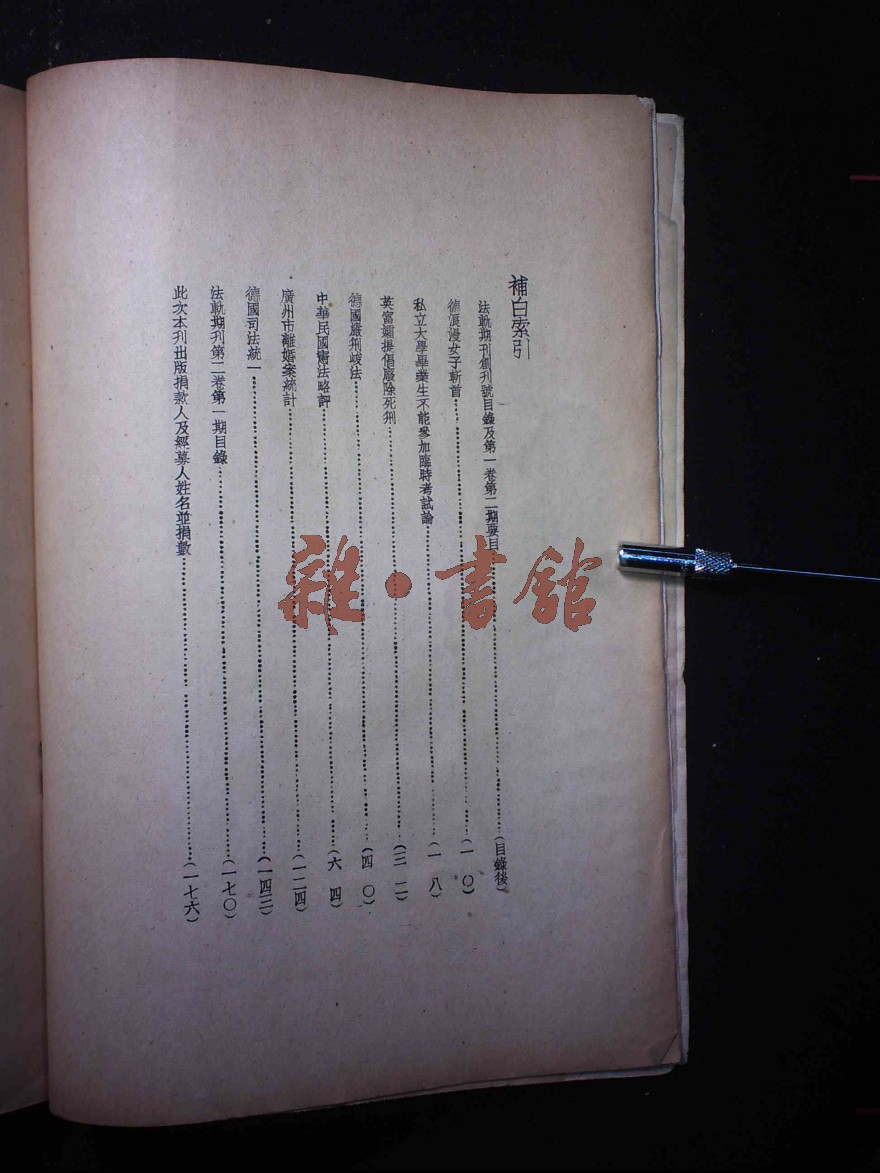 補白索引
法軌期刊創刊號目錄及第一卷第二期要目……(目錄後)
德浪漫女子斬首……(一〇)
私立大學畢業生不能參加臨時考試論……(一八)
英富孀提倡廢除死刑……(三二)
德國嚴刑峻法……(四〇)
中華民國憲法略評……(六四)
廣州市離婚案統計……(一二四)
德國司法統一……(一四三)
法軌期刊第二卷第一期目錄……(一七〇)
此次本刊出版捐款人及經募人姓名並捐數……(一七六)
雜·書館